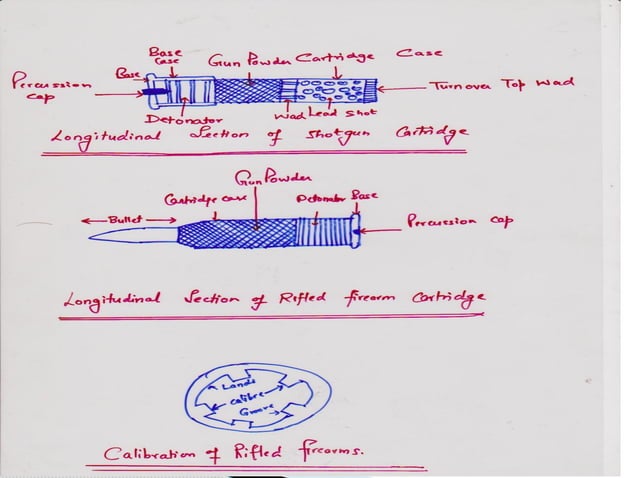 Base
Case
Gun Powder
Cartridge Case
Base
Percussion
cap
Turnover Top Wad
Detonator
Wad
Lead Shot
Longitudinal Section of Shotgun Cartridge
Gun Powder
Cartridge case
Detonator
Base
Bullet
Percussion cap
Longitudinal Section of Rifled firearm Cartridge
Lands
Calibre
Groove
Calibration of Rifled firearms.